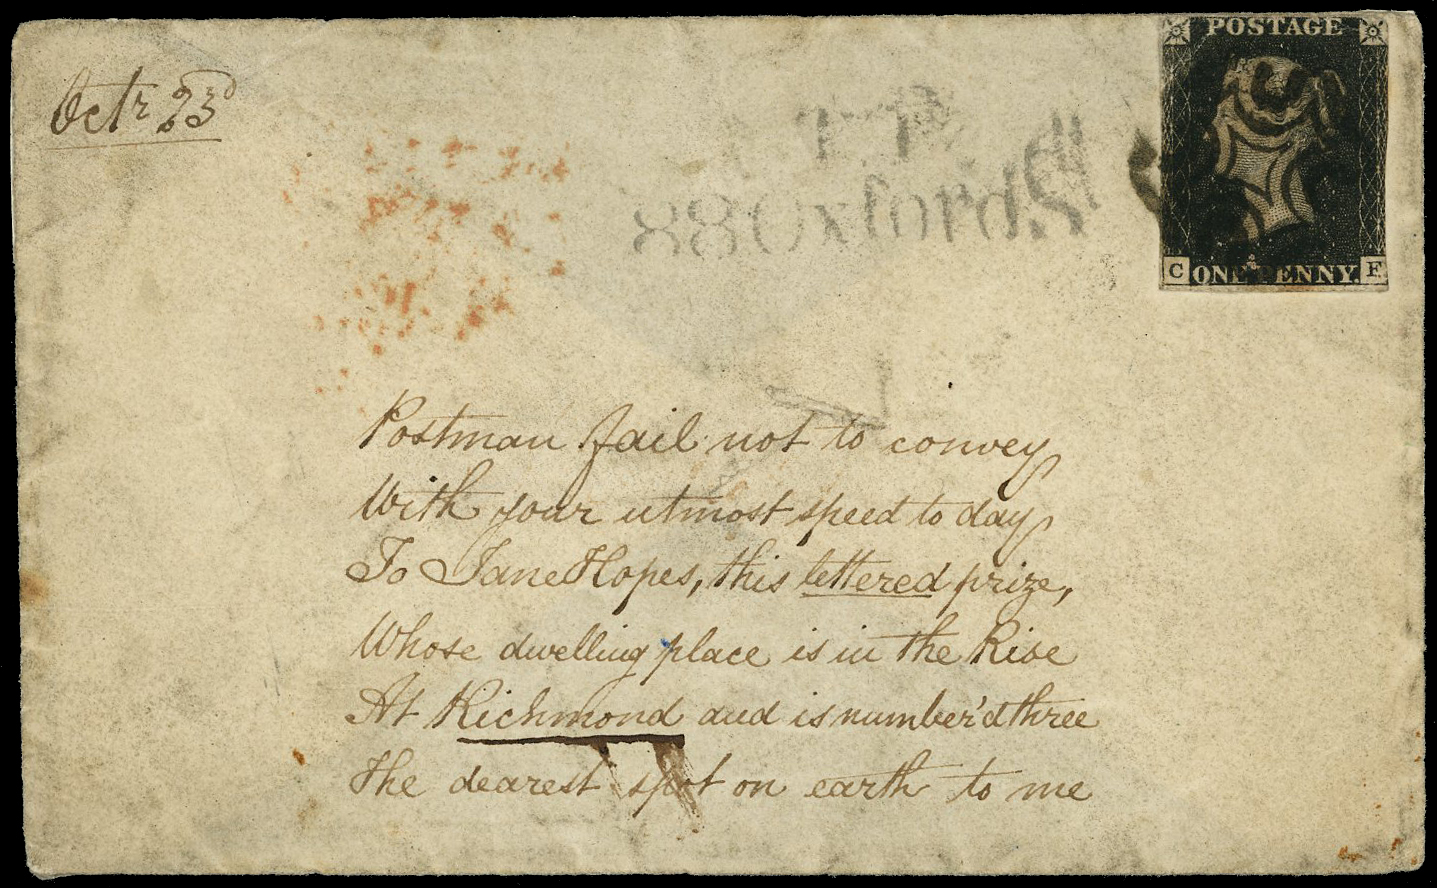 Octr 23d
POSTAGE
T.P
88 Oxford St
C ONE PENNY. F
Postman fail not to convey
With your utmost speed to day
To Jane Hopes, this lettered prize,
Whose dwelling place is in the Rise
At Richmond and is number'd three
The dearest spot on earth to me